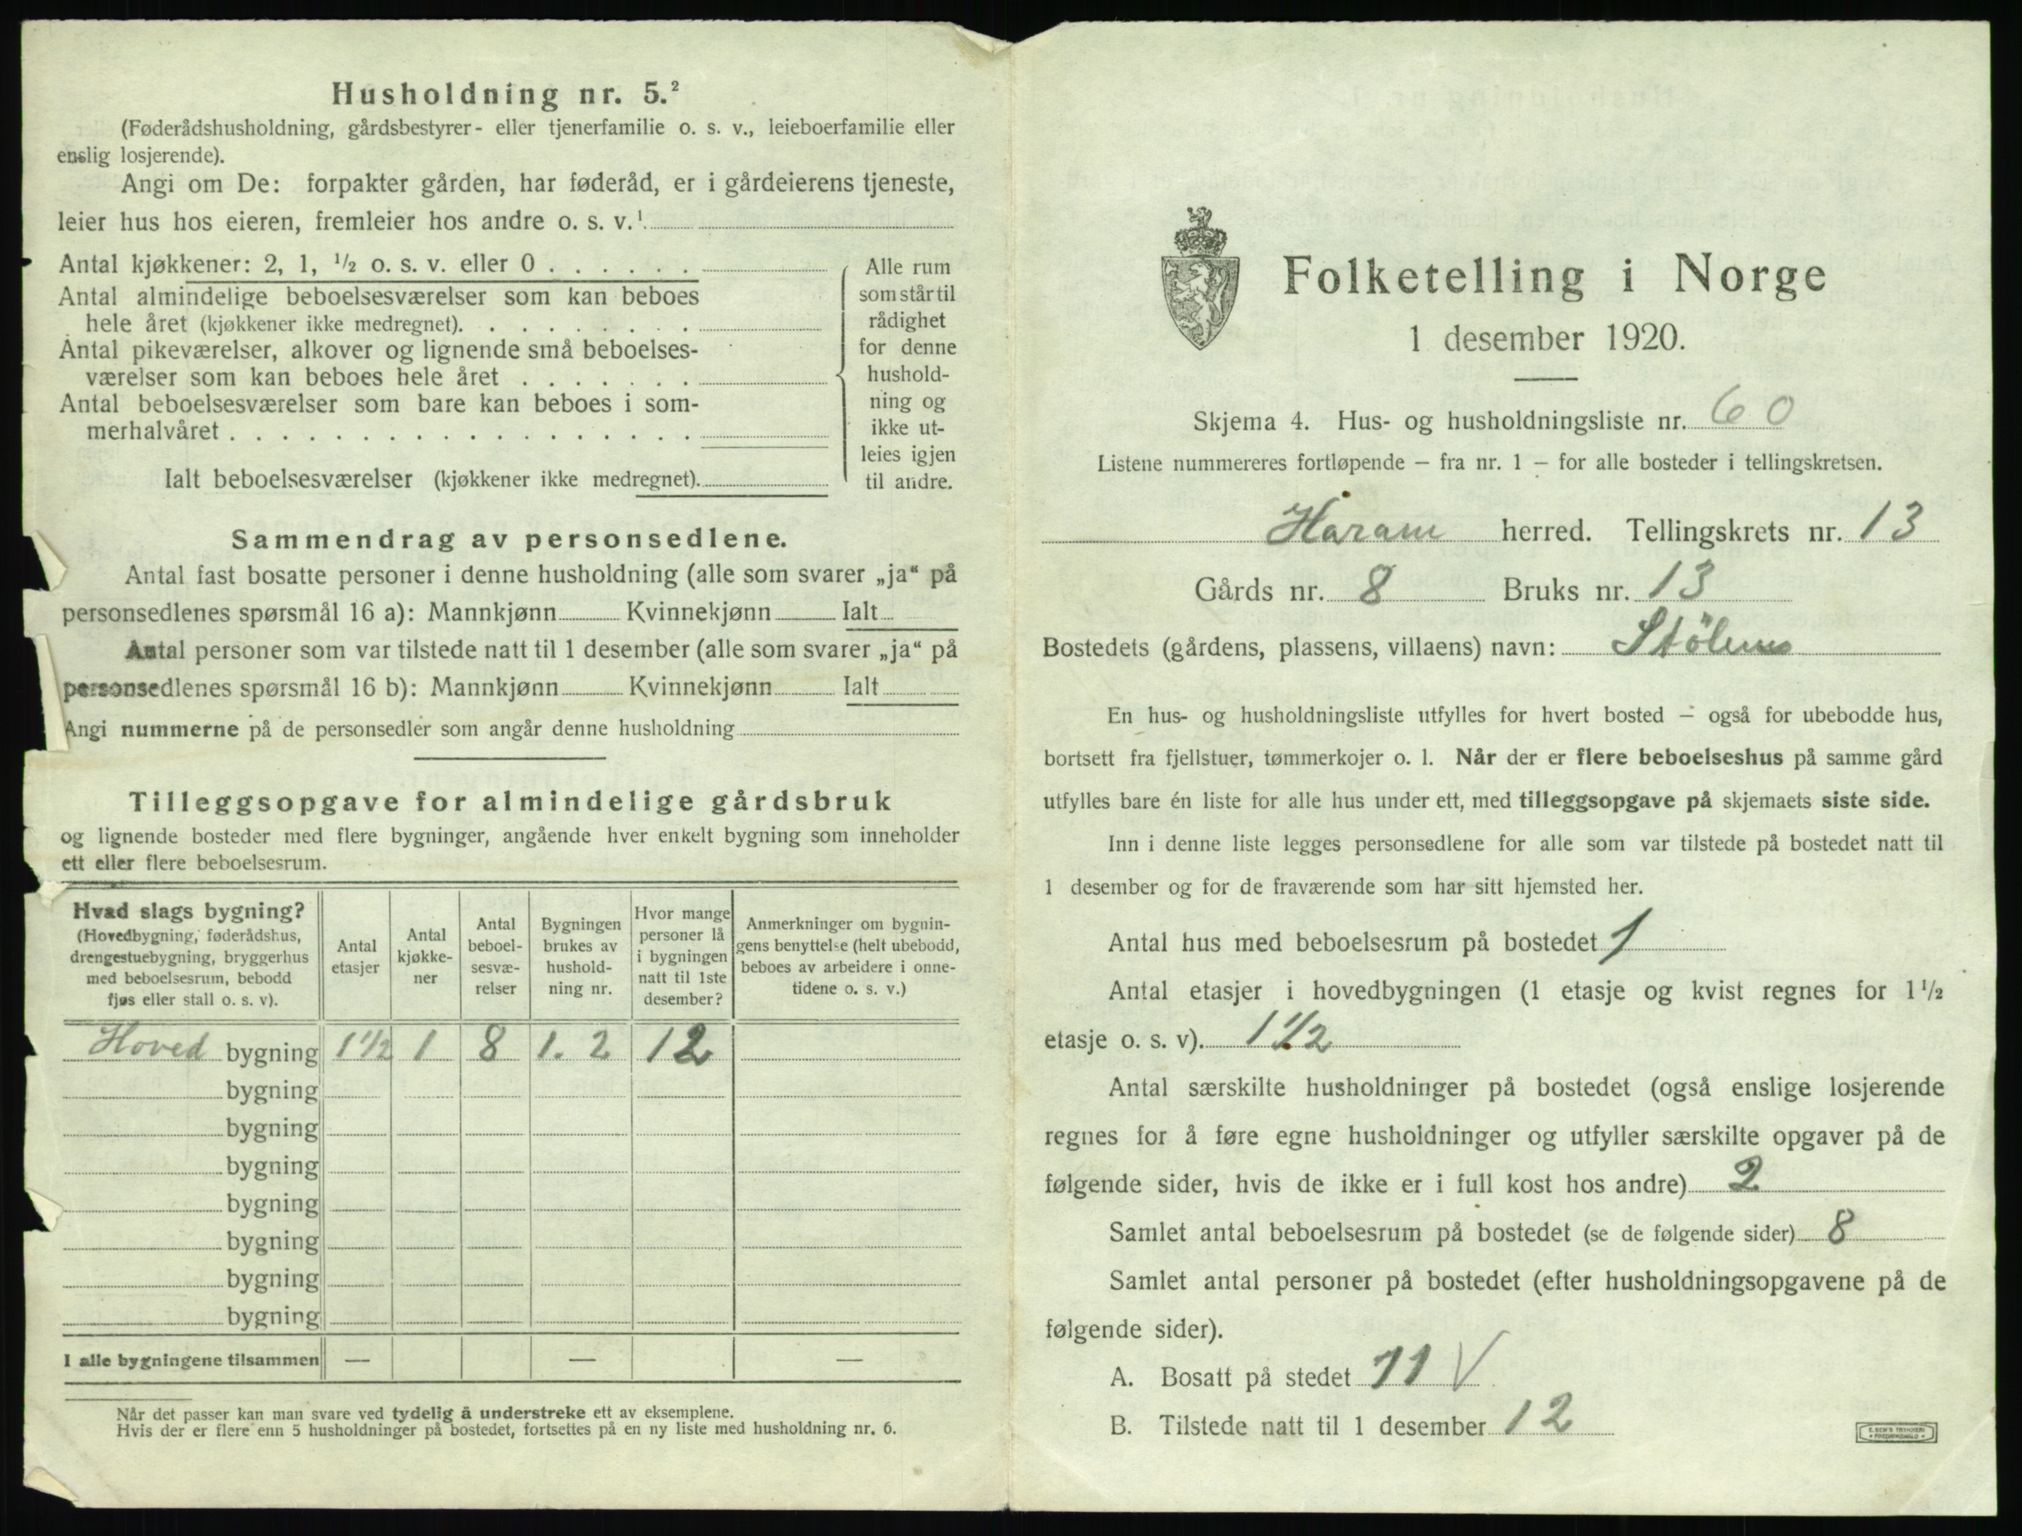 Husholdning nr. 5.²
(Føderådshusholdning, gårdsbestyrer- eller tjenerfamilie o. s. v., leieboerfamilie eller
enslig losjerende).
Angi om De: forpakter gården, har føderåd, er i gårdeierens tjeneste,
leier hus hos eieren, fremleier hos andre o. s. v.¹
Antal kjøkkener: 2, 1, ½ o. s. v. eller 0 . . . . . .
Antal almindelige beboelsesværelser som kan beboes
hele året (kjøkkener ikke medregnet). . . . . . . . .
Antal pikeværelser, alkover og lignende små beboelses-
værelser som kan beboes hele året . . . . . . .
Antal beboelsesværelser som bare kan beboes i som-
merhalvåret . . . . . . . . . . . . . . . . . .
Ialt beboelsesværelser (kjøkkener ikke medregnet).
Alle rum
som står til
rådighet
for denne
hushold-
ning og
ikke ut-
leies igjen
til andre.
Sammendrag av personsedlene.
Antal fast bosatte personer i denne husholdning (alle som svarer „ja“ på
personsedlenes spørsmål 16 a): Mannkjønn Kvinnekjønn Ialt
Antal personer som var tilstede natt til 1 desember (alle som svarer „ja“ på
personsedlenes spørsmål 16 b): Mannkjønn Kvinnekjønn Ialt
Angi nummerne på de personsedler som angår denne husholdning
Tilleggsopgave for almindelige gårdsbruk
og lignende bosteder med flere bygninger, angående hver enkelt bygning som inneholder
ett eller flere beboelsesrum.
Hvad slags bygning?
(Hovedbygning, føderådshus,
drengestuebygning, bryggerhus
med beboelsesrum, bebodd
fjøs eller stall o. s. v).
Antal
etasjer
Antal
kjøkke-
ner
Antal
beboel-
sesvæ-
relser
Bygningen
brukes av
hushold-
ning nr.
Hvor mange
personer lå
i bygningen
natt til 1ste
desember?
Anmerkninger om bygnin-
gens benyttelse (helt ubebodd,
beboes av arbeidere i onne-
tidene o. s. v.)
Hoved bygning 1½ 1 8 1. 2 12
bygning
bygning
bygning
bygning
bygning
bygning
bygning
I alle bygningene tilsammen — — —
Når det passer kan man svare ved tydelig å understreke ett av eksemplene.
Hvis der er flere enn 5 husholdninger på bostedet, fortsettes på en ny liste med husholdning nr. 6.
Folketelling i Norge
1 desember 1920.
Skjema 4. Hus- og husholdningsliste nr. 60
Listene nummereres fortløpende — fra nr. 1 — for alle bosteder i tellingskretsen.
Haram herred. Tellingskrets nr. 13
Gårds nr. 8 Bruks nr. 13
Bostedets (gårdens, plassens, villaens) navn:
En hus- og husholdningsliste utfylles for hvert bosted — også for ubebodde hus,
bortsett fra fjellstuer, tømmerkojer o. l. Når der er flere beboelseshus på samme gård
utfylles bare én liste for alle hus under ett, med tilleggsopgave på skjemaets siste side.
Inn i denne liste legges personsedlene for alle som var tilstede på bostedet natt til
1 desember og for de fraværende som har sitt hjemsted her.
Antal hus med beboelsesrum på bostedet 1
Antal etasjer i hovedbygningen (1 etasje og kvist regnes for 1½
etasje o. s. v). 1½
Antal særskilte husholdninger på bostedet (også enslige losjerende
regnes for å føre egne husholdninger og utfyller særskilte opgaver på de
følgende sider, hvis de ikke er i full kost hos andre) 2
Samlet antal beboelsesrum på bostedet (se de følgende sider) 8
Samlet antal personer på bostedet (efter husholdningsopgavene på de
følgende sider).
A. Bosatt på stedet 11 V
B. Tilstede natt til 1 desember 12